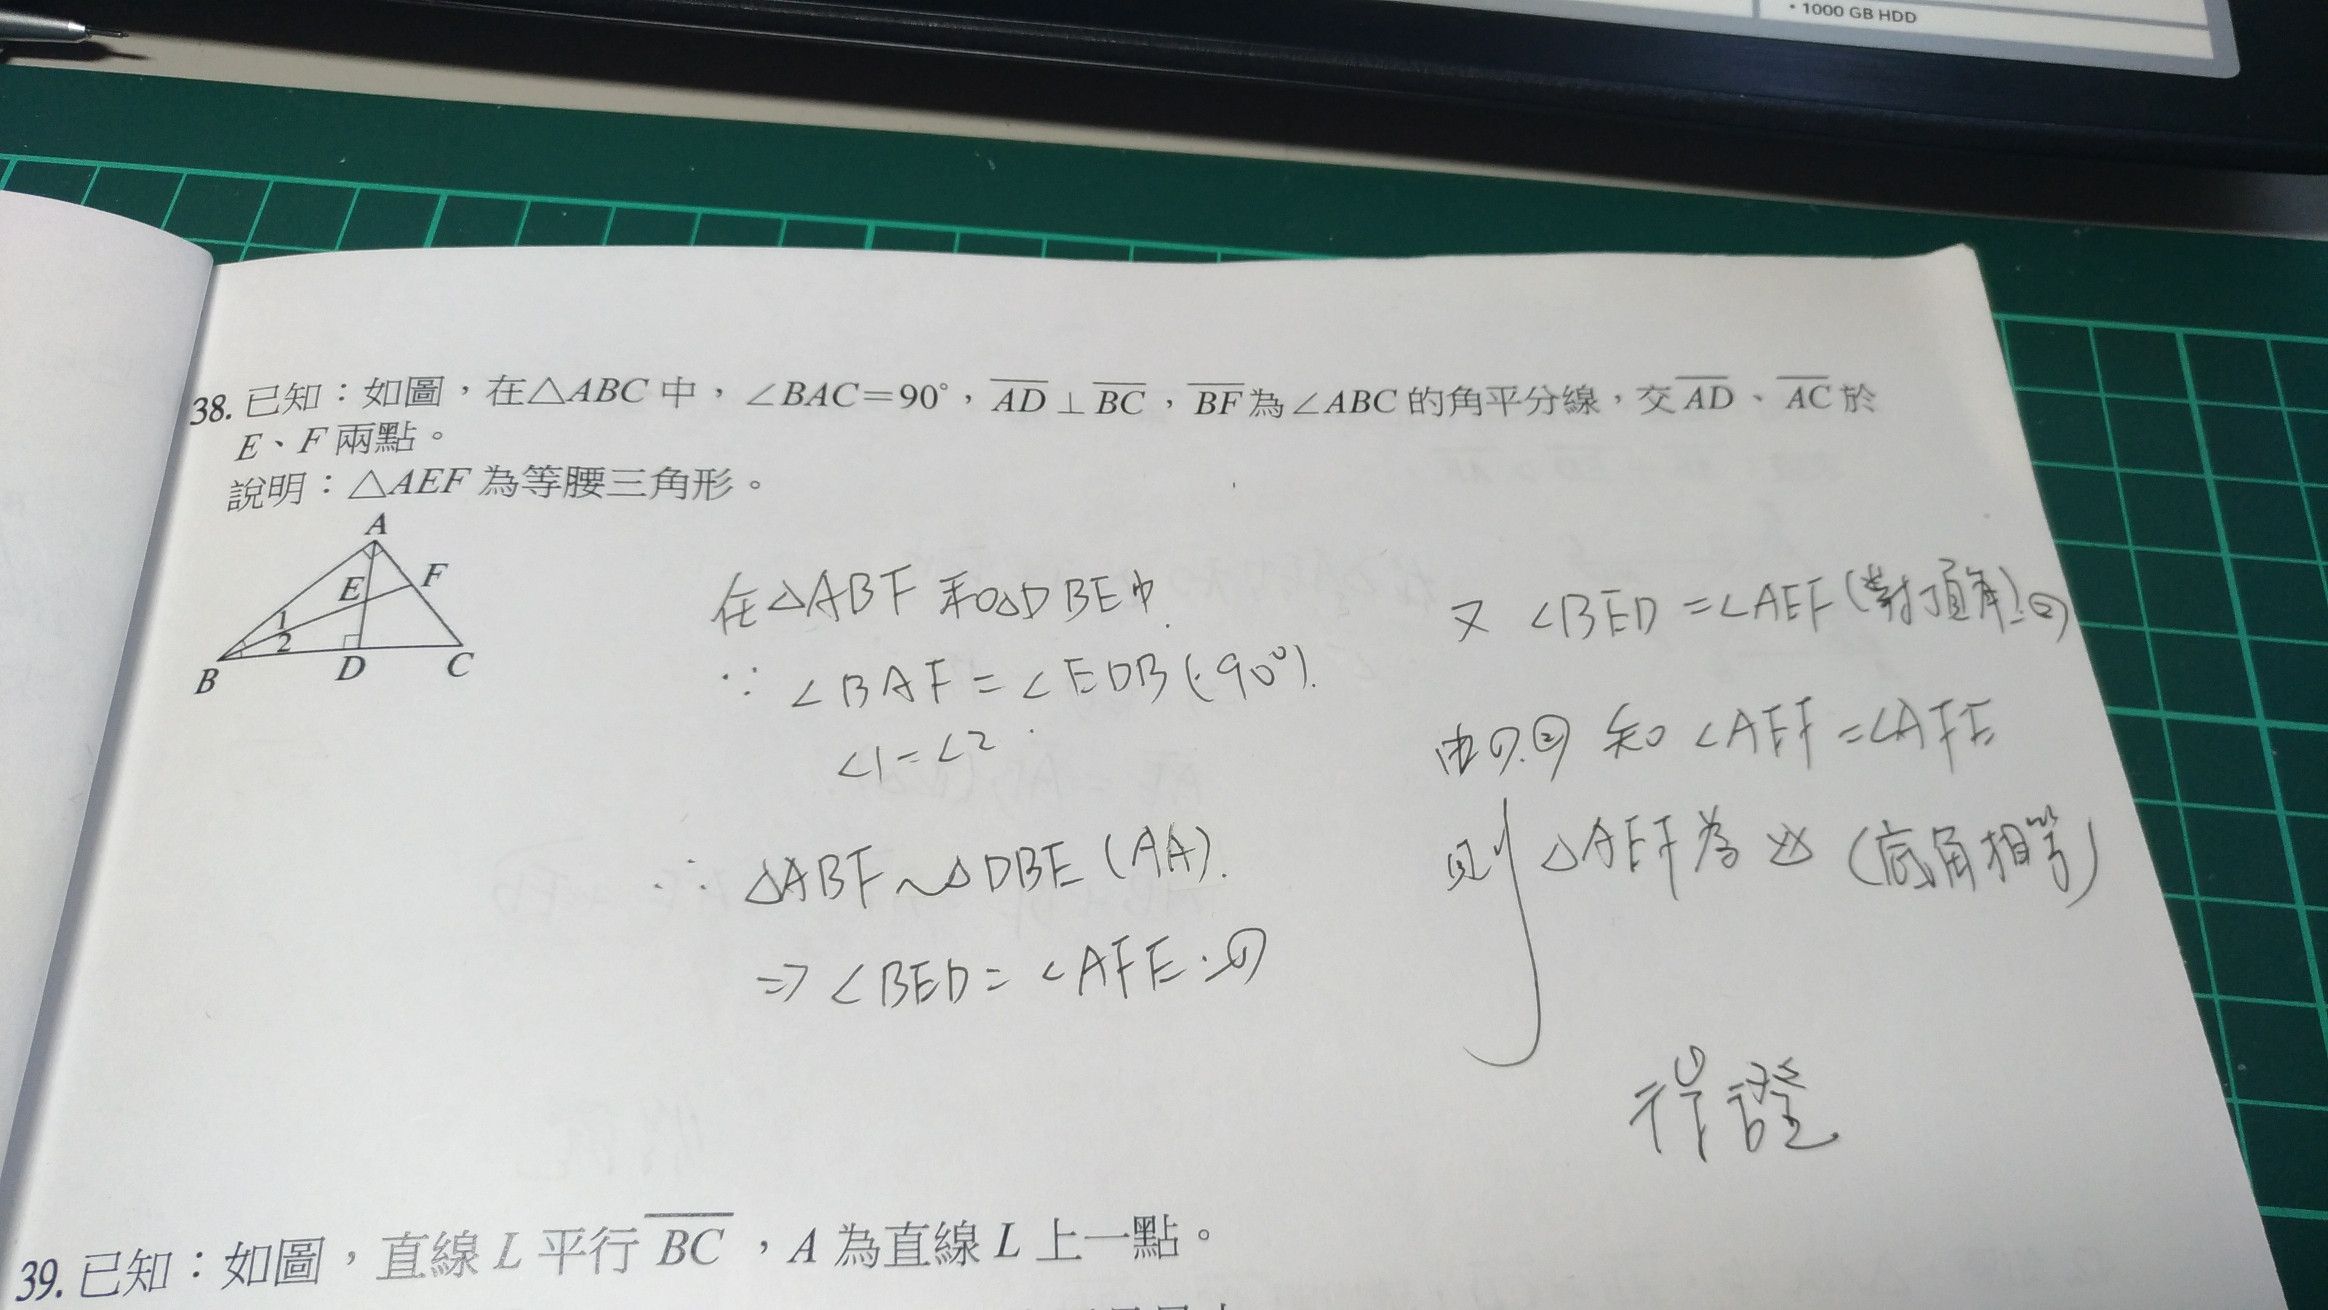 • 1000 GB HDD
38. 已知：如圖，在△ABC 中，∠BAC=90°，AD⊥BC，BF為∠ABC 的角平分線，交AD、AC於
E、F 兩點。
說明：△AEF 為等腰三角形。
A
E
F
1
2
B
D
C
在△ABF 和△DBE中.
∵ ∠BAF=∠EDB(=90°).
∠1=∠2
∴ △ABF~△DBE (AA).
⇒ ∠BED=∠AFE.①
又 ∠BED=∠AEF(對頂角).②
由①.② 知 ∠AEF=∠AFE
則 △AEF為 (底角相等)
得證
39. 已知：如圖，直線 L 平行 BC，A 為直線 L 上一點。